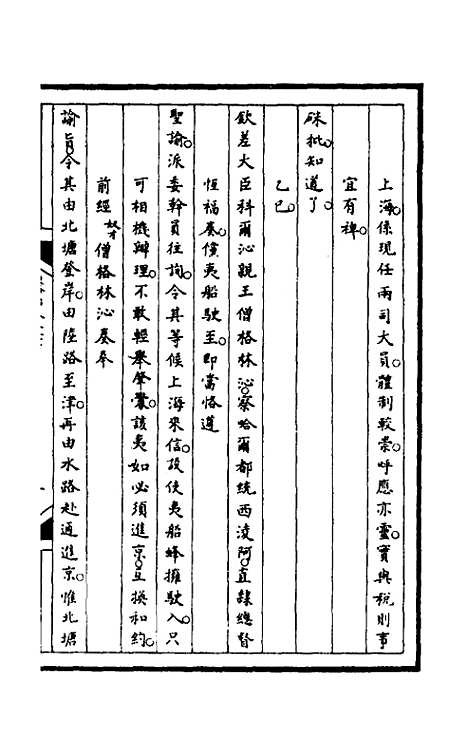 上海。係現任兩司大員。體制較崇。呼應亦靈。實與稅則事
宜有裨。
硃批。知道了。
乙巳。
欽差大臣科爾沁親王僧格林沁。察哈爾都統西淩阿。直隸總督
恆福奏。儻夷船駛至。卽當恪遵
聖諭。派委幹員往詢。令其等候上海來信。設使夷船蜂擁駛入。只
可相機辦理。不敢輕舉肇釁。該夷如必須進京。互換和約。
前經奴才僧格林沁奏奉
諭旨。令其由北塘登岸。由陸路至津。再由水路赴通進京。惟北塘